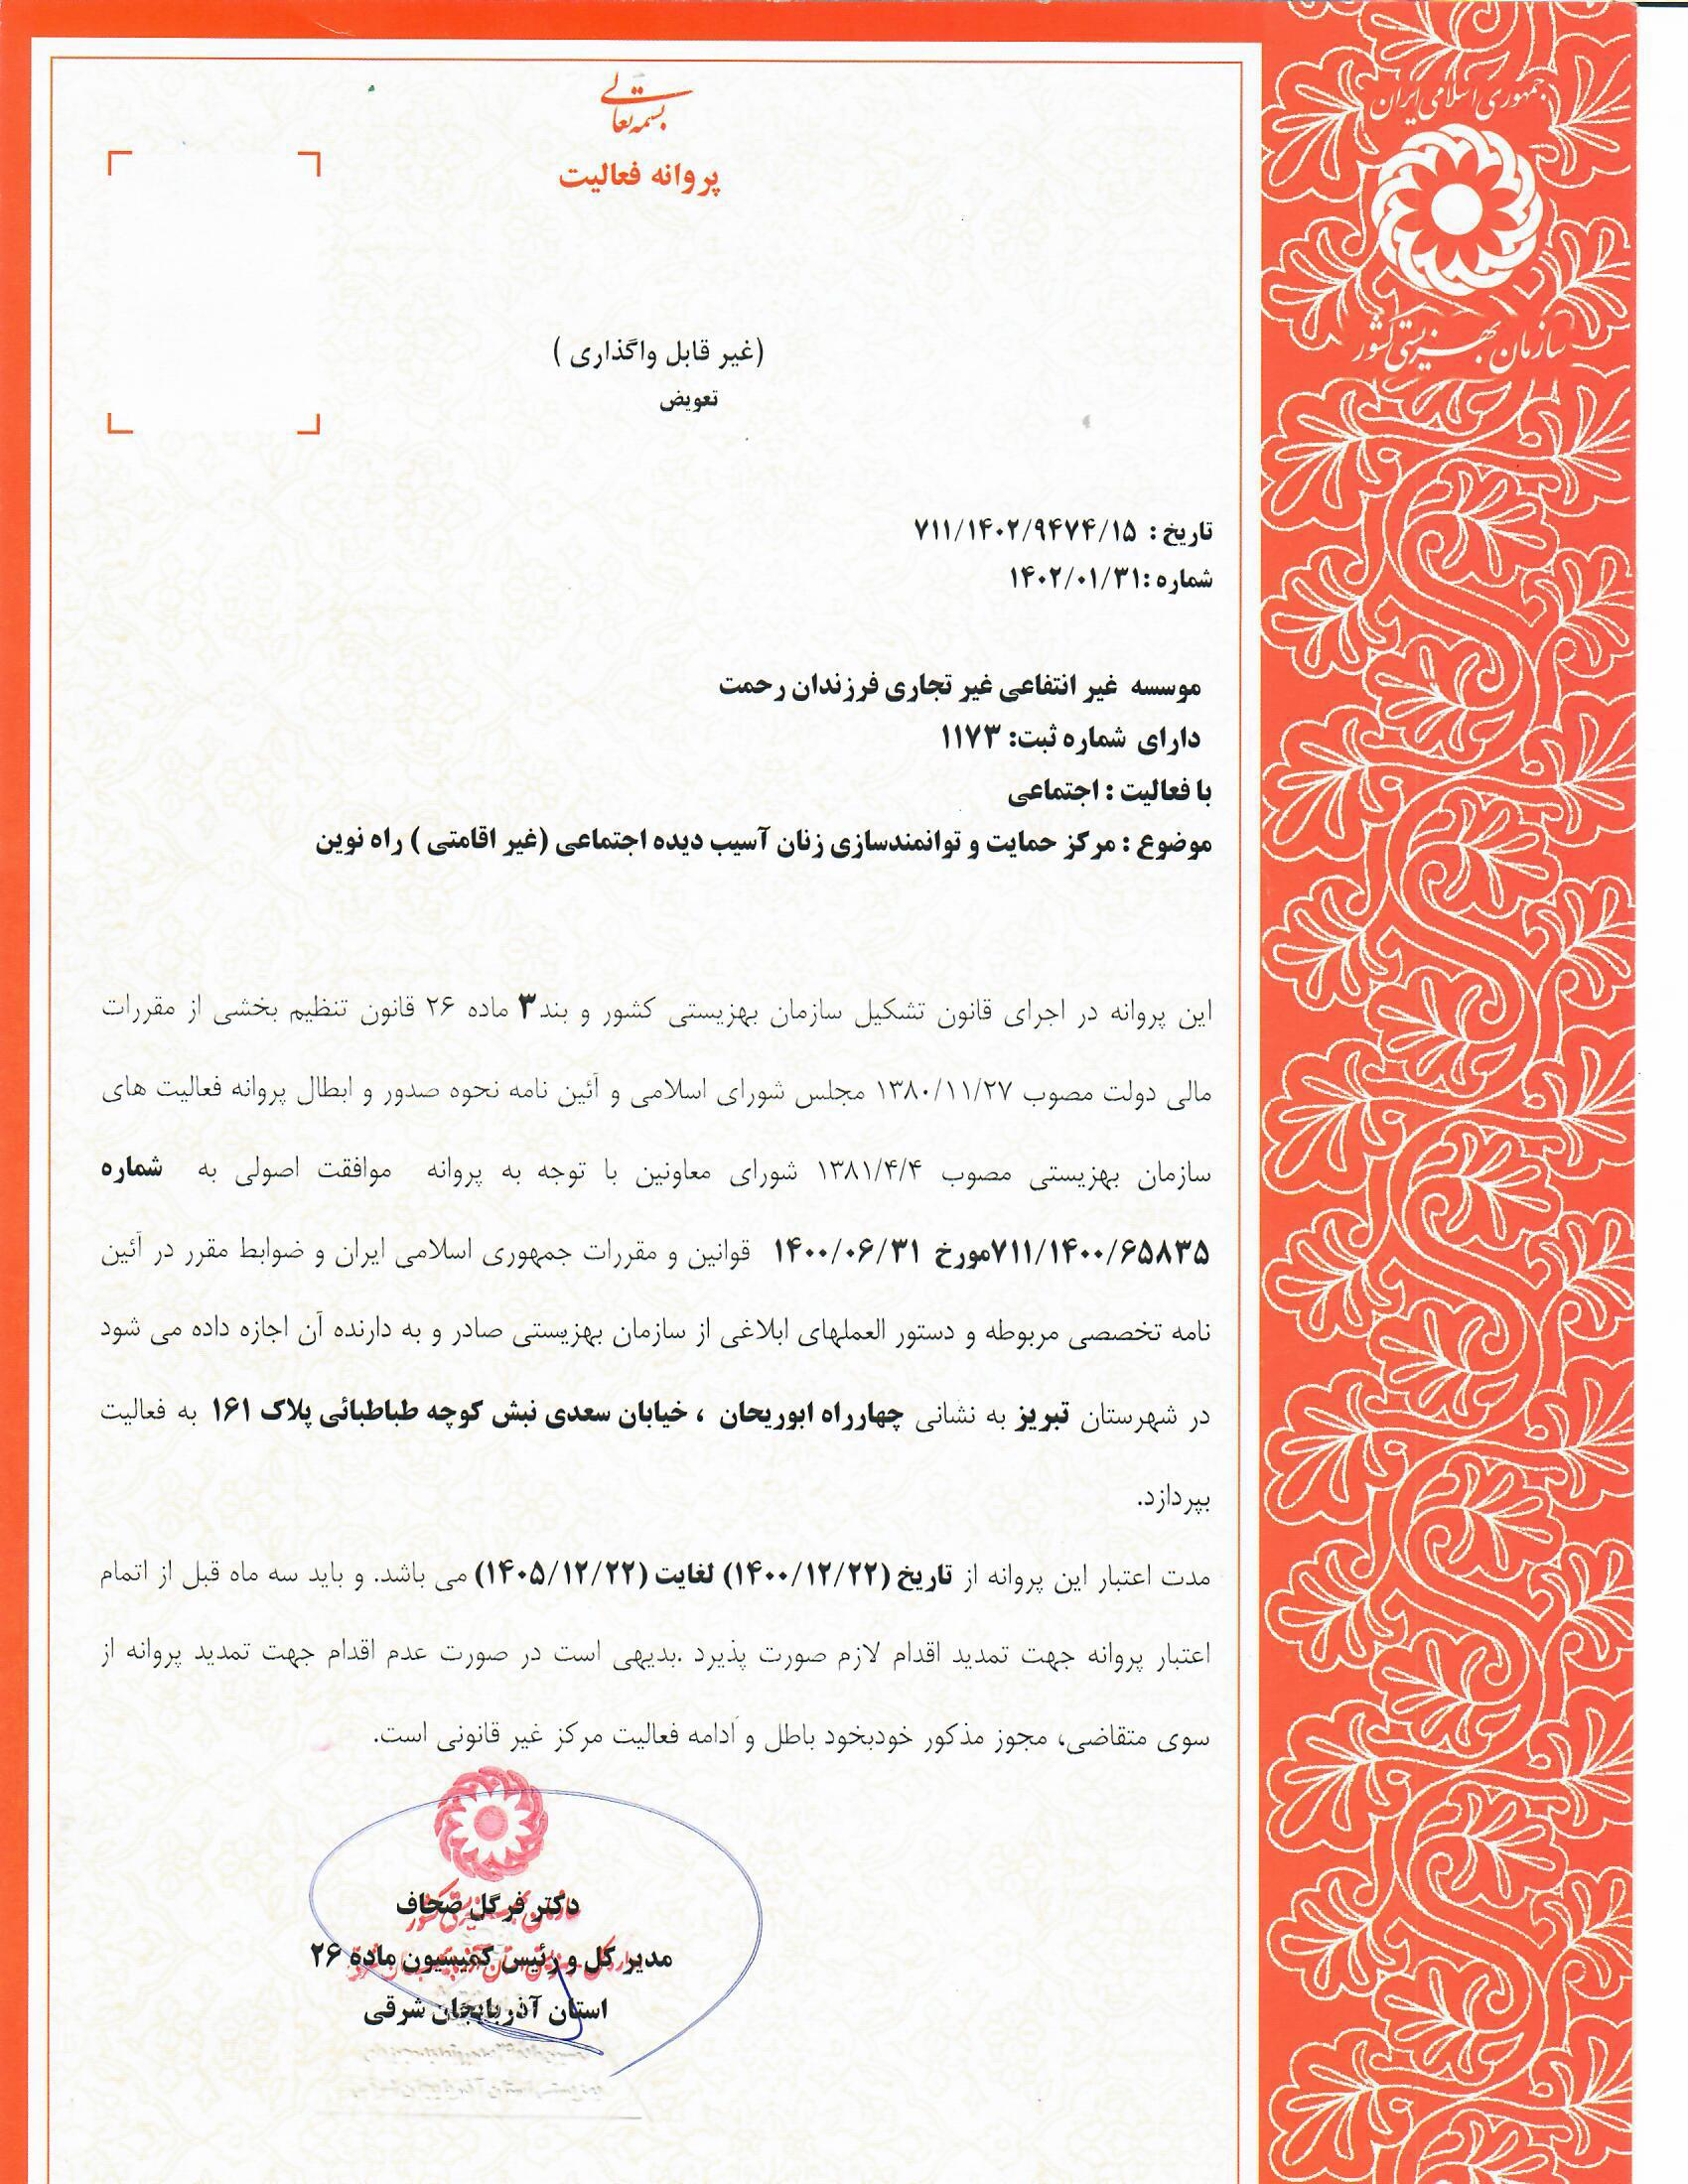 جمهوری اسلامی ایران
سازمان بهزیستی کشور
بسمه تعالی
پروانه فعالیت
(غیر قابل واگذاری )
تعویض
تاریخ : ۷۱۱/۱۴۰۲/۹۴۷۴/۱۵
شماره :۱۴۰۲/۰۱/۳۱
موسسه غیر انتفاعی غیر تجاری فرزندان رحمت
دارای شماره ثبت: ۱۱۷۳
با فعالیت : اجتماعی
موضوع : مرکز حمایت و توانمندسازی زنان آسیب دیده اجتماعی (غیر اقامتی ) راه نوین
این پروانه در اجرای قانون تشکیل سازمان بهزیستی کشور و بند۳ ماده ۲۶ قانون تنظیم بخشی از مقررات
مالی دولت مصوب ۱۳۸۰/۱۱/۲۷ مجلس شورای اسلامی و آئین نامه نحوه صدور و ابطال پروانه فعالیت های
سازمان بهزیستی مصوب ۱۳۸۱/۴/۴ شورای معاونین با توجه به پروانه موافقت اصولی به شماره
۷۱۱/۱۴۰۰/۶۵۸۳۵مورخ ۱۴۰۰/۰۶/۳۱ قوانین و مقررات جمهوری اسلامی ایران و ضوابط مقرر در آئین
نامه تخصصی مربوطه و دستور العملهای ابلاغی از سازمان بهزیستی صادر و به دارنده آن اجازه داده می شود
در شهرستان تبریز به نشانی چهارراه ابوریحان ، خیابان سعدی نبش کوچه طباطبائی پلاک ۱۶۱ به فعالیت
بپردازد.
مدت اعتبار این پروانه از تاریخ (۱۴۰۰/۱۲/۲۲) لغایت (۱۴۰۵/۱۲/۲۲) می باشد. و باید سه ماه قبل از اتمام
اعتبار پروانه جهت تمدید اقدام لازم صورت پذیرد .بدیهی است در صورت عدم اقدام جهت تمدید پروانه از
سوی متقاضی، مجوز مذکور خودبخود باطل و اَدامه فعالیت مرکز غیر قانونی است.
دکتر فرگل صحاف
مدیر کل و رئیس کمیسیون ماده ۲۶
استان آذربایجان شرقی